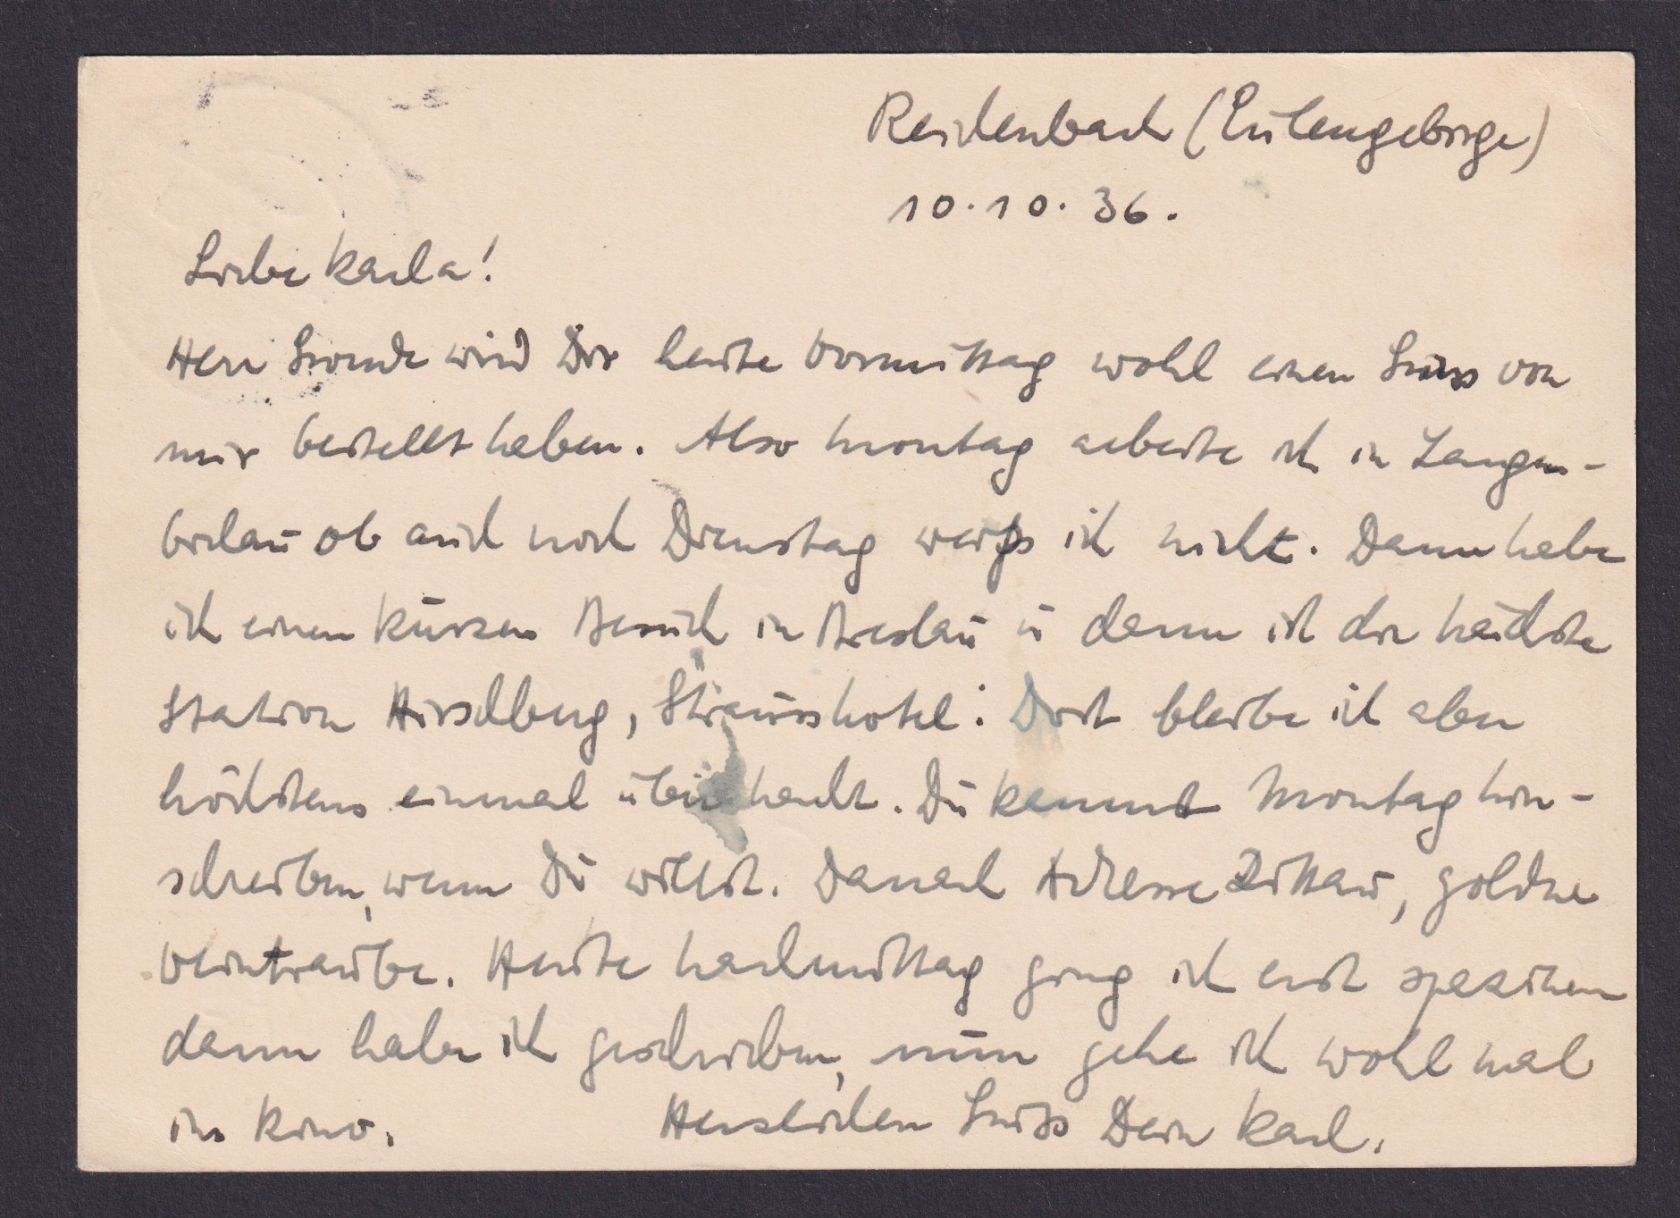 Reichenbach (Eulengebirge)
10.10.36.
Liebe Karla!
Herr wird Dir heute Vormittag wohl einen Gruss von
mir bestellt haben. Also Montag arbeite ich in Langen-
bielau ob auch noch Dienstag weiß ich nicht. Dann habe
ich einen kurzen Besuch in Breslau u dann ist die nächste
Station Hirschberg, Strausshotel. Dort bleibe ich aber
höchstens einmal über Nacht. Du kannst Montag hin-
schreiben, wenn Du willst. Danach Adresse Zittau, goldne
Weintraube. Heute Nachmittag ging ich erst spazieren
dann habe ich geschrieben, nun gehe ich wohl mal
ins Kino. Herzlichen Gruß Dein Karl.